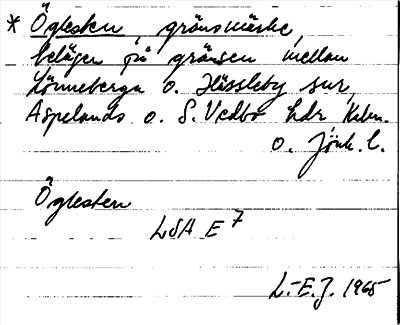 * Öglesten, gränsmärke,
beläget på gränsen mellan
Lönneberga o. Hässleby snr,
Aspelands o. S. Vedbo hdr, Kalm.
o. Jönk. l.
Öglesten
LSA E 7
L.-E. J. 1965